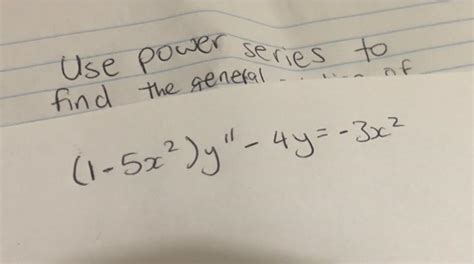 Use power series to
find the general of
(1-5x²)y" - 4y = -3x²